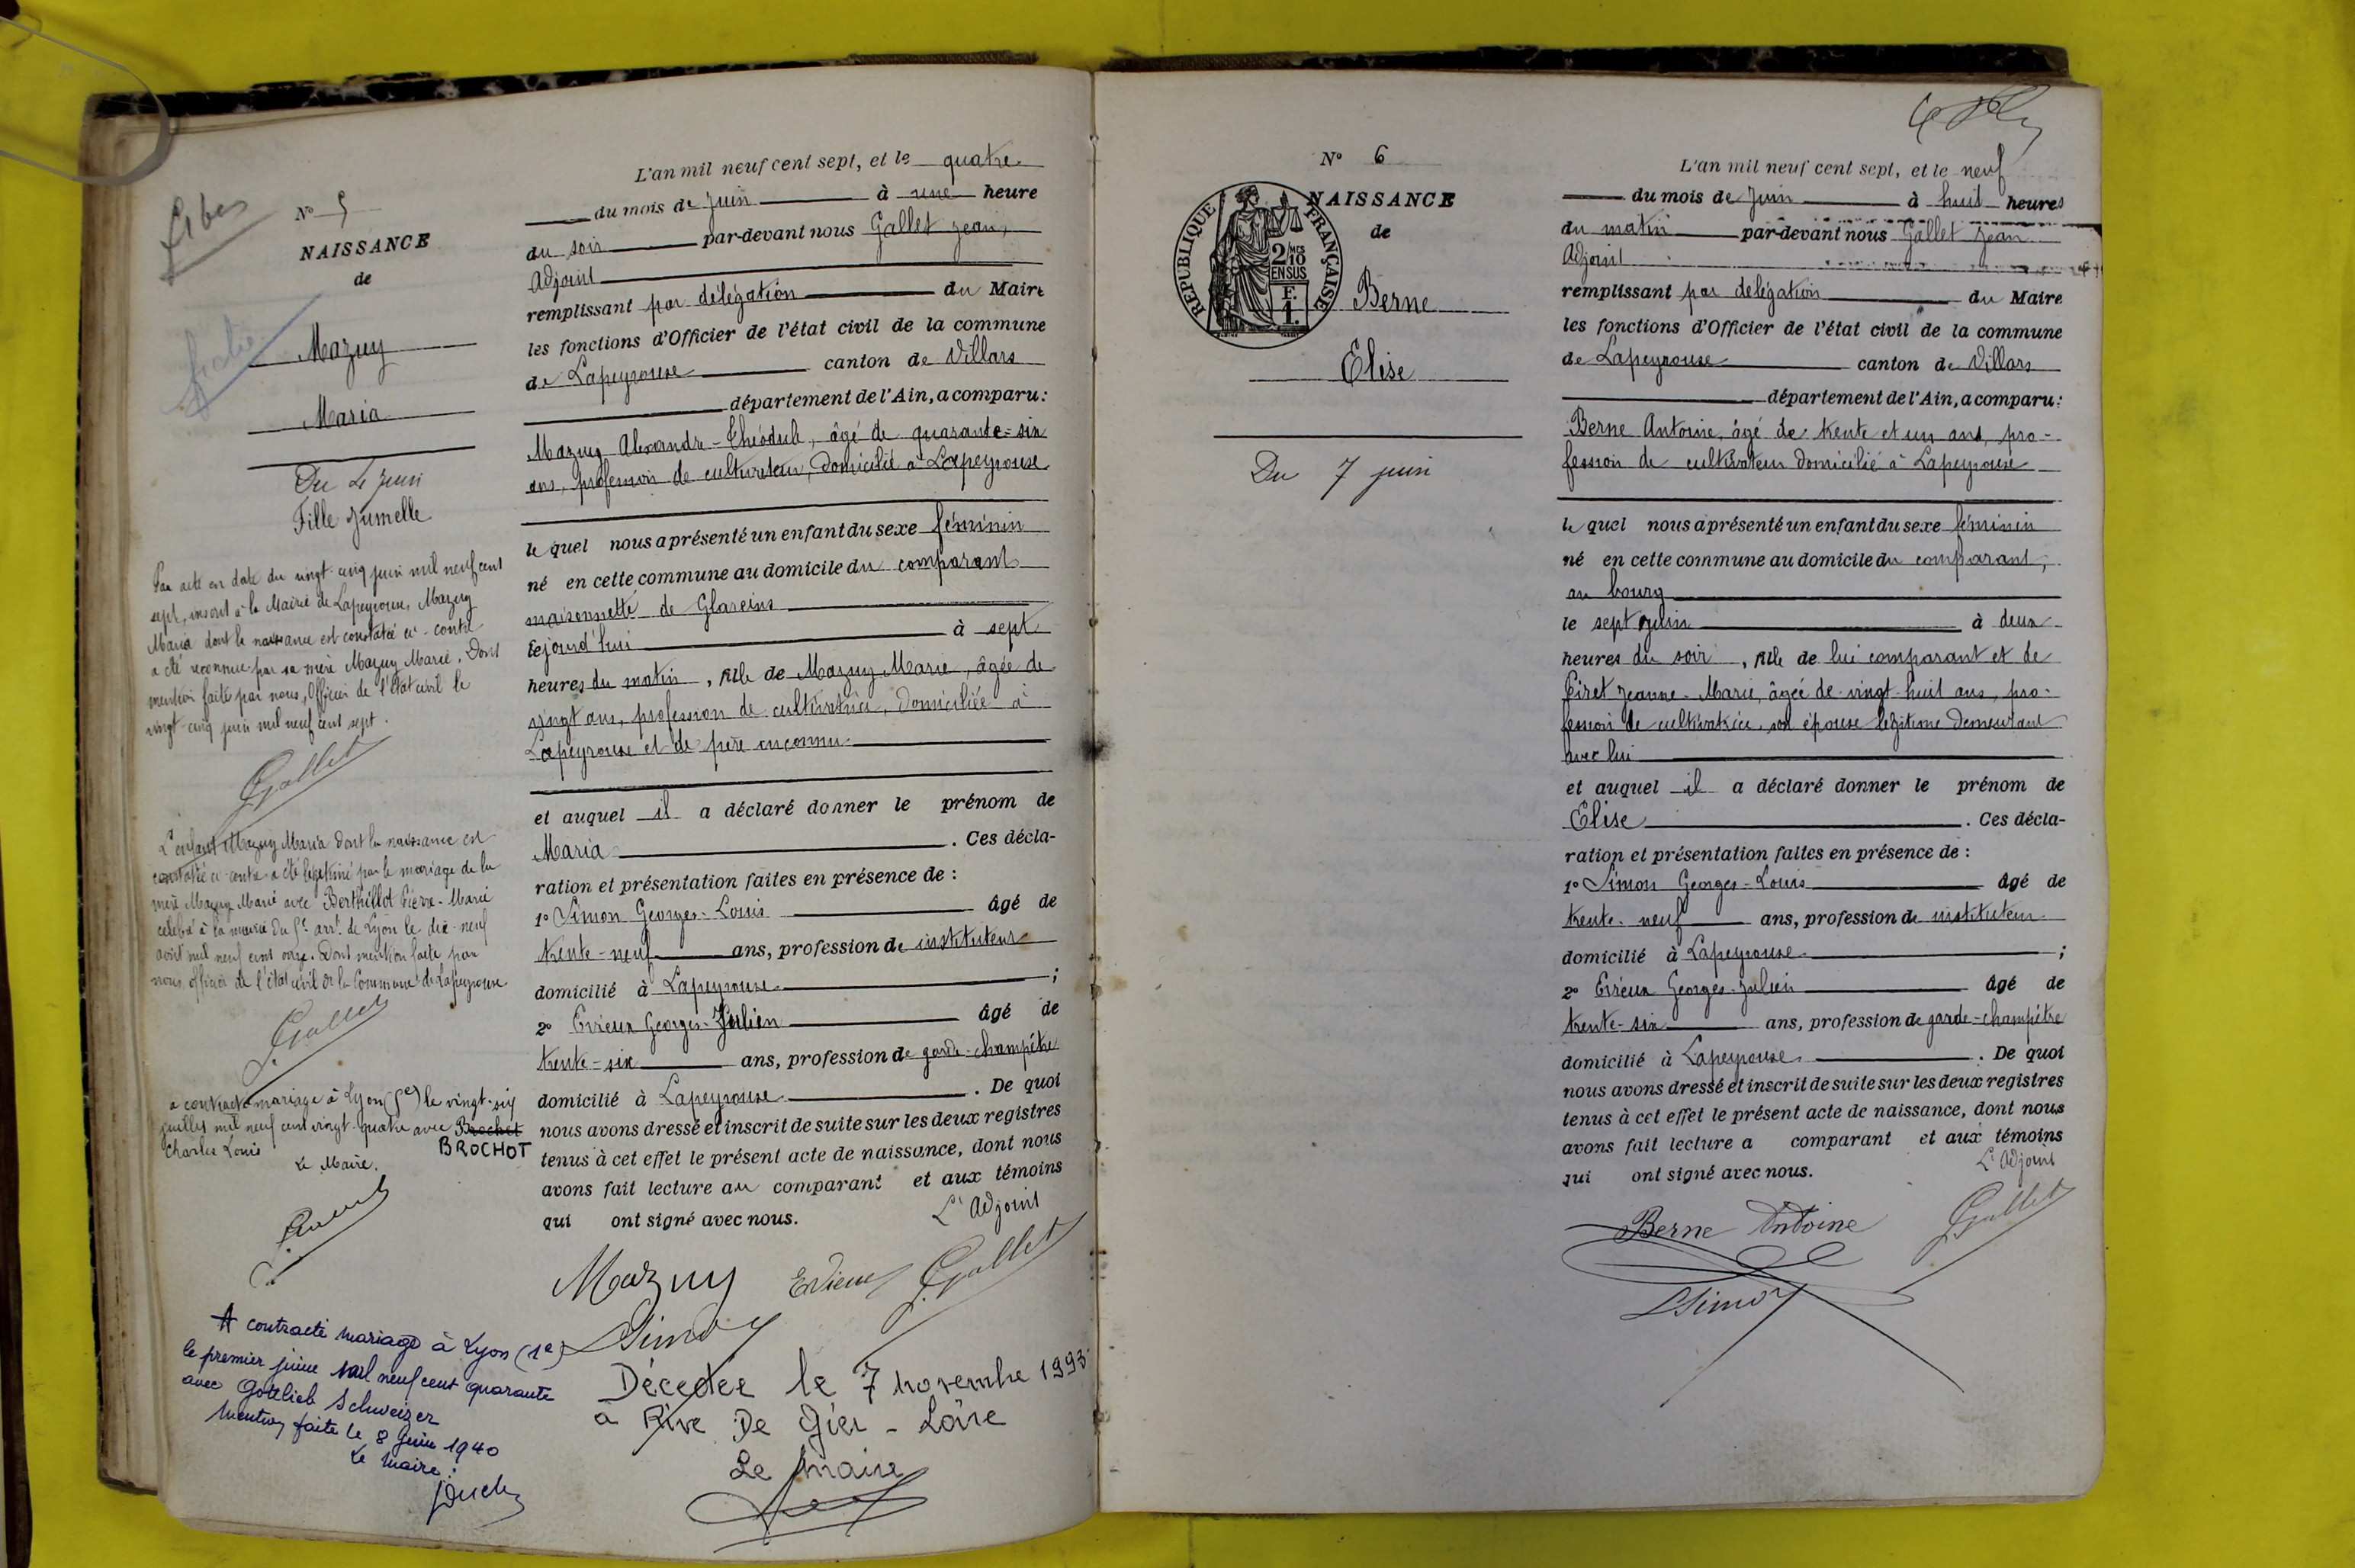 Nº 5
NAISSANCE
de
Mazuy
Maria
Du 4 juin
Fille Jumelle
Par acte en date du vingt-cinq juin mil neuf cent
sept, inscrit à la Mairie de Lapeyrouse, Mazuy
Maria dont la naissance est constatée ci-contre
a été reconnue par sa mère Mazuy Marie. Dont
mention faite par nous, Officier de l'état civil le
vingt-cinq juin mil neuf cent sept.
Gallet
L'enfant Mazuy Maria dont la naissance est
constatée ci-contre a été légitimé par le mariage de la
mère Mazuy Marie avec Berthillot Pierre-Marie
célébré à la mairie du 5e arrt de Lyon le dix-neuf
août mil neuf cent onze. Dont mention faite par
nous officier de l'état civil de la Commune de Lapeyrouse
J. Gallet
a contracté mariage à Lyon (5e) le vingt-six
juillet mil neuf cent vingt-quatre avec Brochet
BROCHOT
Charles Louis
Le Maire.
A contracté mariage à Lyon (1e)
le premier juin mil neuf cent quarante
avec Gottlieb Schweizer
Mention faite le 8 Juin 1940
Le Maire :
L'an mil neuf cent sept, et le quatre
du mois de Juin à une heure
du soir par-devant nous Gallet Jean,
Adjoint
remplissant par délégation du Maire
les fonctions d'Officier de l'état civil de la commune
de Lapeyrouse canton de Villars
département de l'Ain, a comparu :
Mazuy Alexandre-Théodule, âgé de quarante-six
ans, profession de cultivateur, domicilié à Lapeyrouse
le quel nous a présenté un enfant du sexe féminin
né en cette commune au domicile du comparant
maisonnette de Glareins
cejourd'hui à sept
heures du matin, fille de Mazuy Marie, âgée de
vingt ans, profession de cultivatrice, domiciliée à
Lapeyrouse et de père inconnu
et auquel il a déclaré donner le prénom de
Maria . Ces décla-
ration et présentation faites en présence de :
1º Simon Georges-Louis âgé de
trente-neuf ans, profession de instituteur
domicilié à Lapeyrouse ;
2º Evieux Georges-Julien âgé de
trente-six ans, profession de garde-champêtre
domicilié à Lapeyrouse . De quoi
nous avons dressé et inscrit de suite sur les deux registres
tenus à cet effet le présent acte de naissance, dont nous
avons fait lecture au comparant et aux témoins
qui ont signé avec nous. L'Adjoint
Mazuy Evieux J. Gallet
LSimon
Décédée le 7 novembre 1993
à Rive De Gier - Loire
Le Maire
Nº 6
NAISSANCE
de
REPUBLIQUE FRANÇAISE
2/10
EN SUS
F.
1.
Berne
Elise
Du 7 juin
L'an mil neuf cent sept, et le neuf
du mois de Juin à huit heures
du matin par-devant nous Gallet Jean
Adjoint
remplissant par délégation du Maire
les fonctions d'Officier de l'état civil de la commune
de Lapeyrouse canton de Villars
département de l'Ain, a comparu :
Berne Antoine, âgé de trente et un ans, pro-
fession de cultivateur domicilié à Lapeyrouse
le quel nous a présenté un enfant du sexe féminin
né en cette commune au domicile du comparant,
au bourg
le sept juin à deux
heures du soir, fille de lui comparant et de
Jeanne-Marie, âgée de vingt-huit ans, pro-
fession de cultivatrice, son épouse légitime demeurant
avec lui
et auquel il a déclaré donner le prénom de
Elise . Ces décla-
ration et présentation faites en présence de :
1º Simon Georges-Louis âgé de
trente-neuf ans, profession de instituteur
domicilié à Lapeyrouse ;
2º Evieux Georges-Julien âgé de
trente-six ans, profession de garde-champêtre
domicilié à Lapeyrouse . De quoi
nous avons dressé et inscrit de suite sur les deux registres
tenus à cet effet le présent acte de naissance, dont nous
avons fait lecture a comparant et aux témoins
qui ont signé avec nous. L'Adjoint
Berne Antoine J. Gallet
LSimon